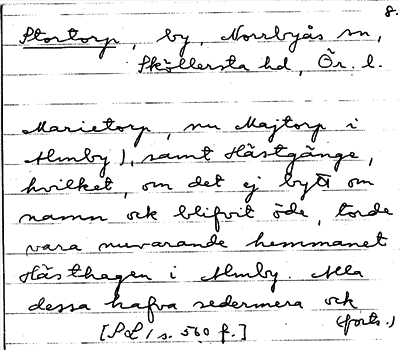 8.
Stortorp, by, Norrbyås sn,
Sköllersta hd, Ör. l.
Marietorp, nu Majtorp i
Almby), samt Hästgänge,
hvilket, om det ej bytt om
namn ock blifvit öde, torde
vara nuvarande hemmanet
Hästhagen i Almby. Alla
dessa hafva sedermera ock
[SL 1 s. 560 f.] (forts.)